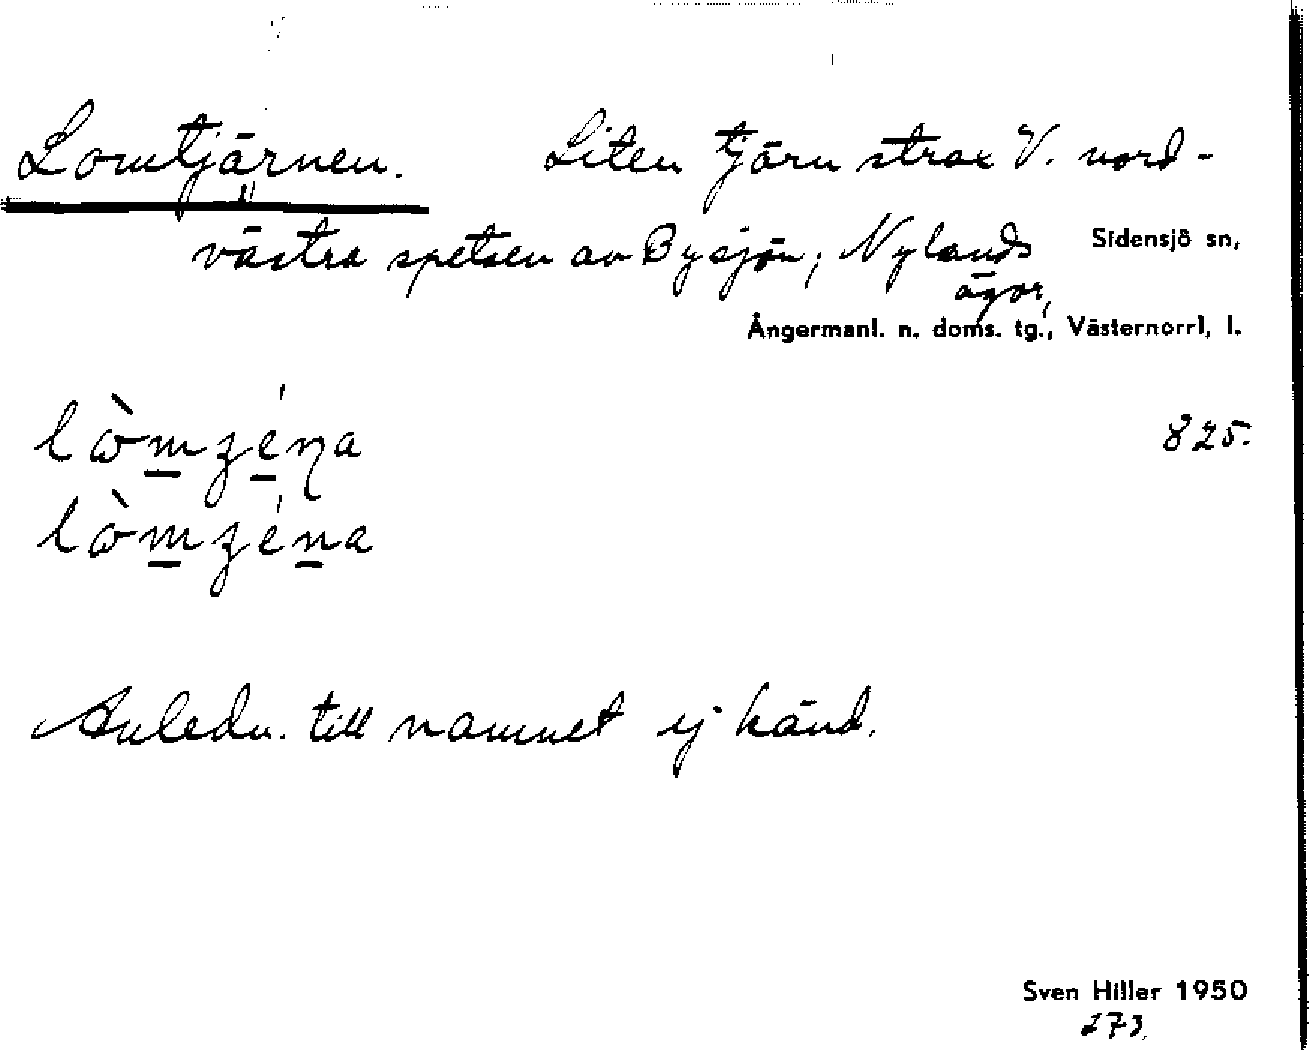 Lomtjärnen. Liten tjärn strax V. nord-
västra spetsen av Bysjön; Nylands
ägor,
Sidensjö sn,
Ångermanl. n. doms. tg., Västernorrl, l.
825.
Anledn. till namnet ej känd.
Sven Hiller 1950
273.